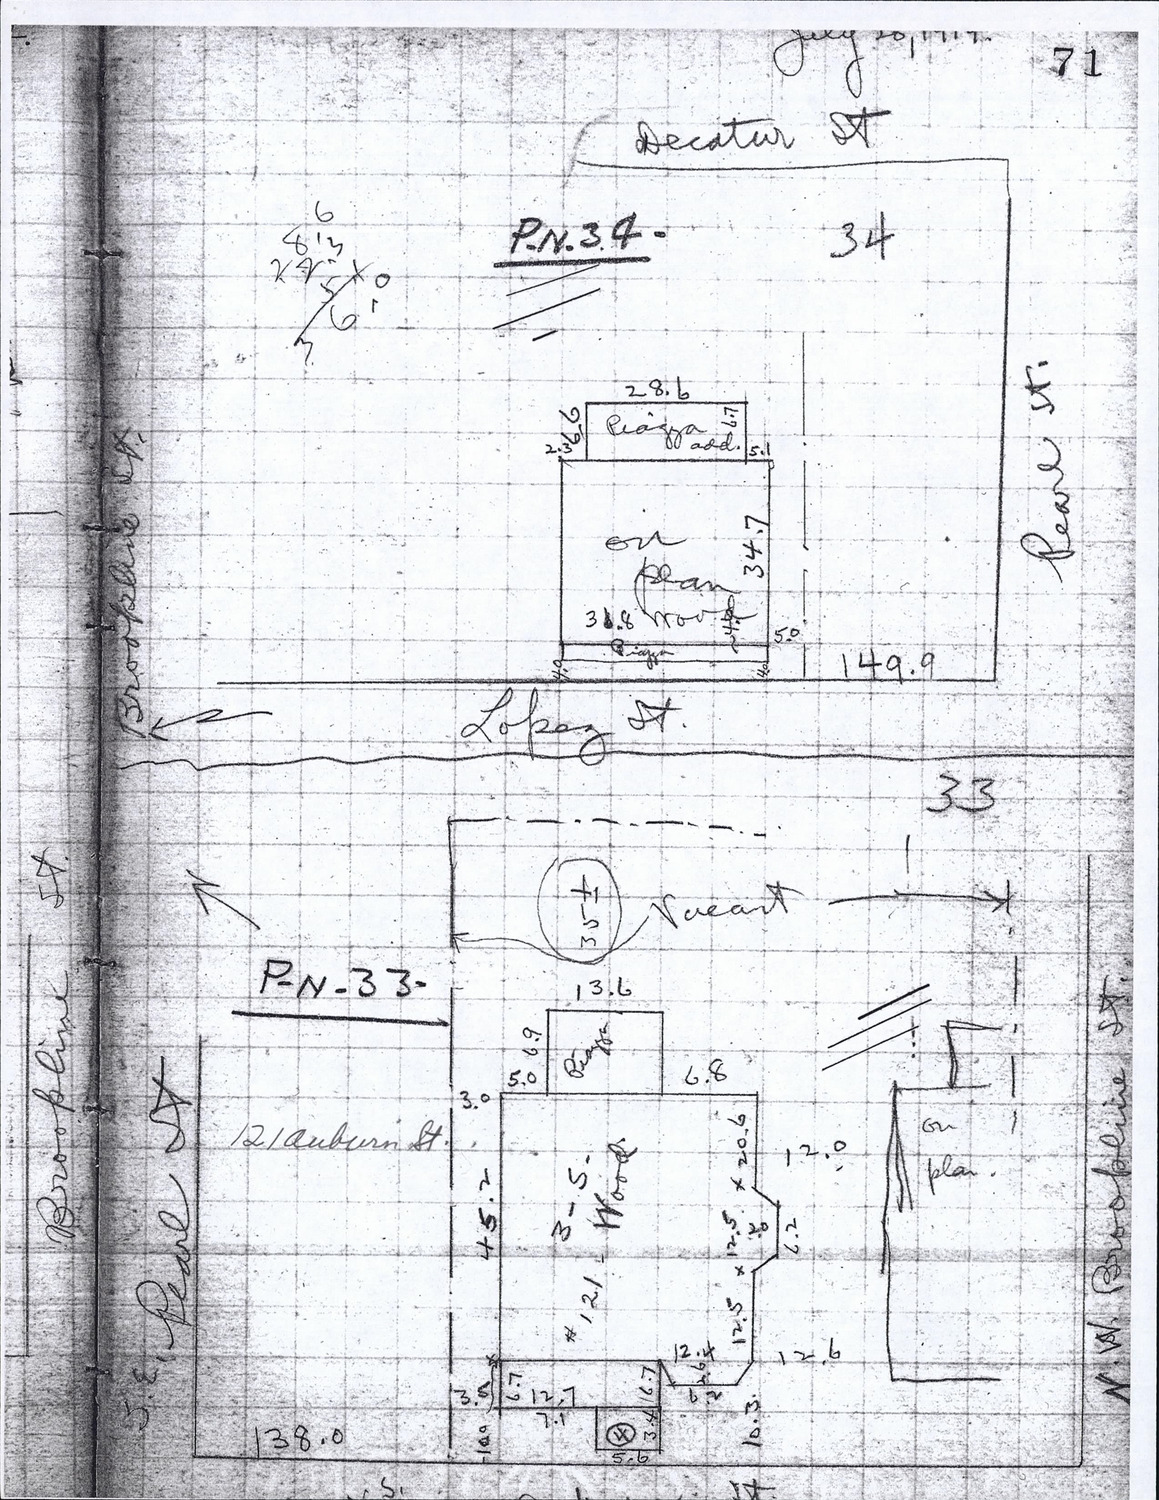 July 1919.
71
Decatur St
P.N.34-
34
6
28.6
6.6
Piazza
add.
6.7
2.3
5.1
Pearl St.
Brookline St.
on
plan
34.7
31.8 wood
5.0
Piazza
4.0
149.9
Lopez St.
33
35±
Vacant
P-N-33-
13.6
6.9
Piazza
5.0
6.8
3.0
Brookline St.
S.E. Pearl St
121 Auburn St.
45.2
3-5-
Wood
#121-
20.6
12.0
12.5
6.2
12.5
12.6
on
plan.
N.W. Brookline St.
3.5
6.7
12.7
6.7
7.1
3.4
5.6
10.3
138.0